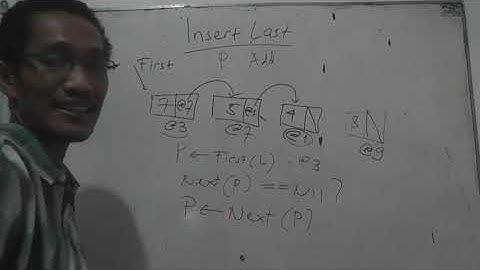 Insert Last
P. Add.
First
7 @7 5 @1 4 8
@3 @7 @1 @9
P ← First(L) @3
Next(P) == Nil ?
P ← Next(P)